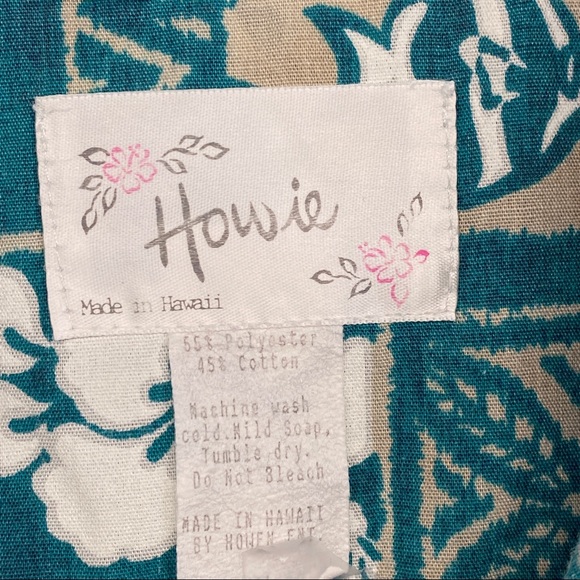 Howie
Made in Hawaii
55% Polyester
45% Cotton
Machine wash
cold.Mild Soap,
Tumble dry.
Do Not Bleach
MADE IN HAWAII
BY HOWEN ENT.